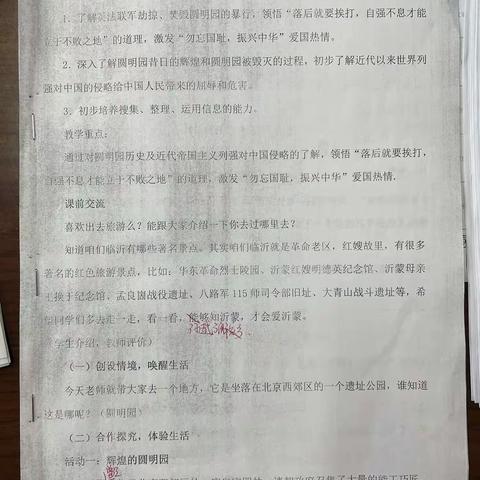 1. 了解英法联军劫掠、焚毁圆明园的暴行，领悟“落后就要挨打，自强不息才能
立于不败之地”的道理，激发“勿忘国耻，振兴中华”爱国热情。
2. 深入了解圆明园昔日的辉煌和圆明园被毁灭的过程，初步了解近代以来世界列
强对中国的侵略给中国人民带来的屈辱和危害。
3. 初步培养搜集、整理、运用信息的能力。
教学重点：
通过对圆明园历史及近代帝国主义列强对中国侵略的了解，领悟“落后就要挨打，
自强不息才能立于不败之地”的道理，激发“勿忘国耻，振兴中华”爱国热情.
课前交流
喜欢出去旅游么？能跟大家介绍一下你去过哪里去？
知道咱们临沂有哪些著名景点。其实咱们临沂就是革命老区，红嫂故里，有很多
著名的红色旅游景点，比如：华东革命烈士陵园、沂蒙红嫂明德英纪念馆、沂蒙母亲
王换于纪念馆、孟良崮战役遗址、八路军 115 师司令部旧址、大青山战斗遗址等，希
望同学们多去走一走，看一看，能够知沂蒙，才会爱沂蒙。
（学生介绍，教师评价）
（一）创设情境，唤醒生活
今天老师就带大家去一个地方，它是坐落在北京西郊区的一个遗址公园，谁知道
这是哪呢？（圆明园）
（二）合作探究，体验生活
活动一：辉煌的圆明园